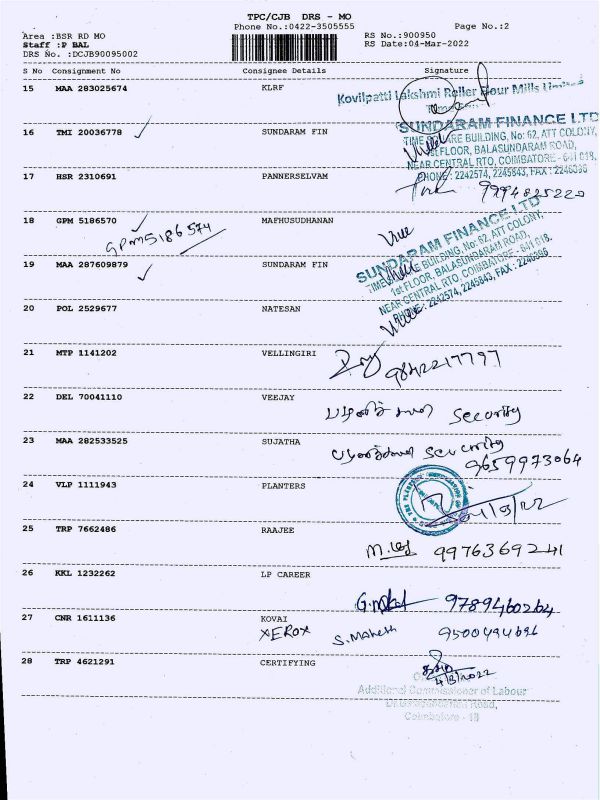 TPC/CJB DRS - MO
Phone No.:0422-3505555
Page No.:2
Area :BSR RD MO
RS No.:900950
Staff :P BAL
RS Date:04-Mar-2022
DRS No. :DCJB90095002
S No Consignment No Consignee Details Signature
15 MAA 283025674 KLRF
Kovilpatti Lakshmi Roller Flour Mills Limited
16 TMI 20036778 SUNDARAM FIN
SUNDARAM FINANCE LTD
TIME SQUARE BUILDING, No: 62, ATT COLONY,
1st FLOOR, BALASUNDARAM ROAD,
NEAR CENTRAL RTO, COIMBATORE - 641 018.
PHONE: 2242574, 2245843, FAX : 2246396
17 HSR 2310691 PANNERSELVAM
9994825220
18 GPM 5186570 MAFHUSUDHANAN
GPM5186574
19 MAA 287609879 SUNDARAM FIN
SUNDARAM FINANCE LTD
TIME SQUARE BUILDING, No: 62, ATT COLONY,
1st FLOOR, BALASUNDARAM ROAD,
NEAR CENTRAL RTO, COIMBATORE - 641 018.
PHONE: 2242574, 2245843, FAX : 2246396
20 POL 2529677 NATESAN
21 MTP 1141202 VELLINGIRI
9842217797
22 DEL 70041110 VEEJAY
Security
23 MAA 282533525 SUJATHA
Security
9659973064
24 VLP 1111943 PLANTERS
25 TRP 7662486 RAAJEE
9976369241
26 KKL 1232262 LP CAREER
9789460264
27 CNR 1611136 KOVAI
XEROX S. Mahesh 9500494696
28 TRP 4621291 CERTIFYING
4/3/2022
Additional Commissioner of Labour
Coimbatore - 18